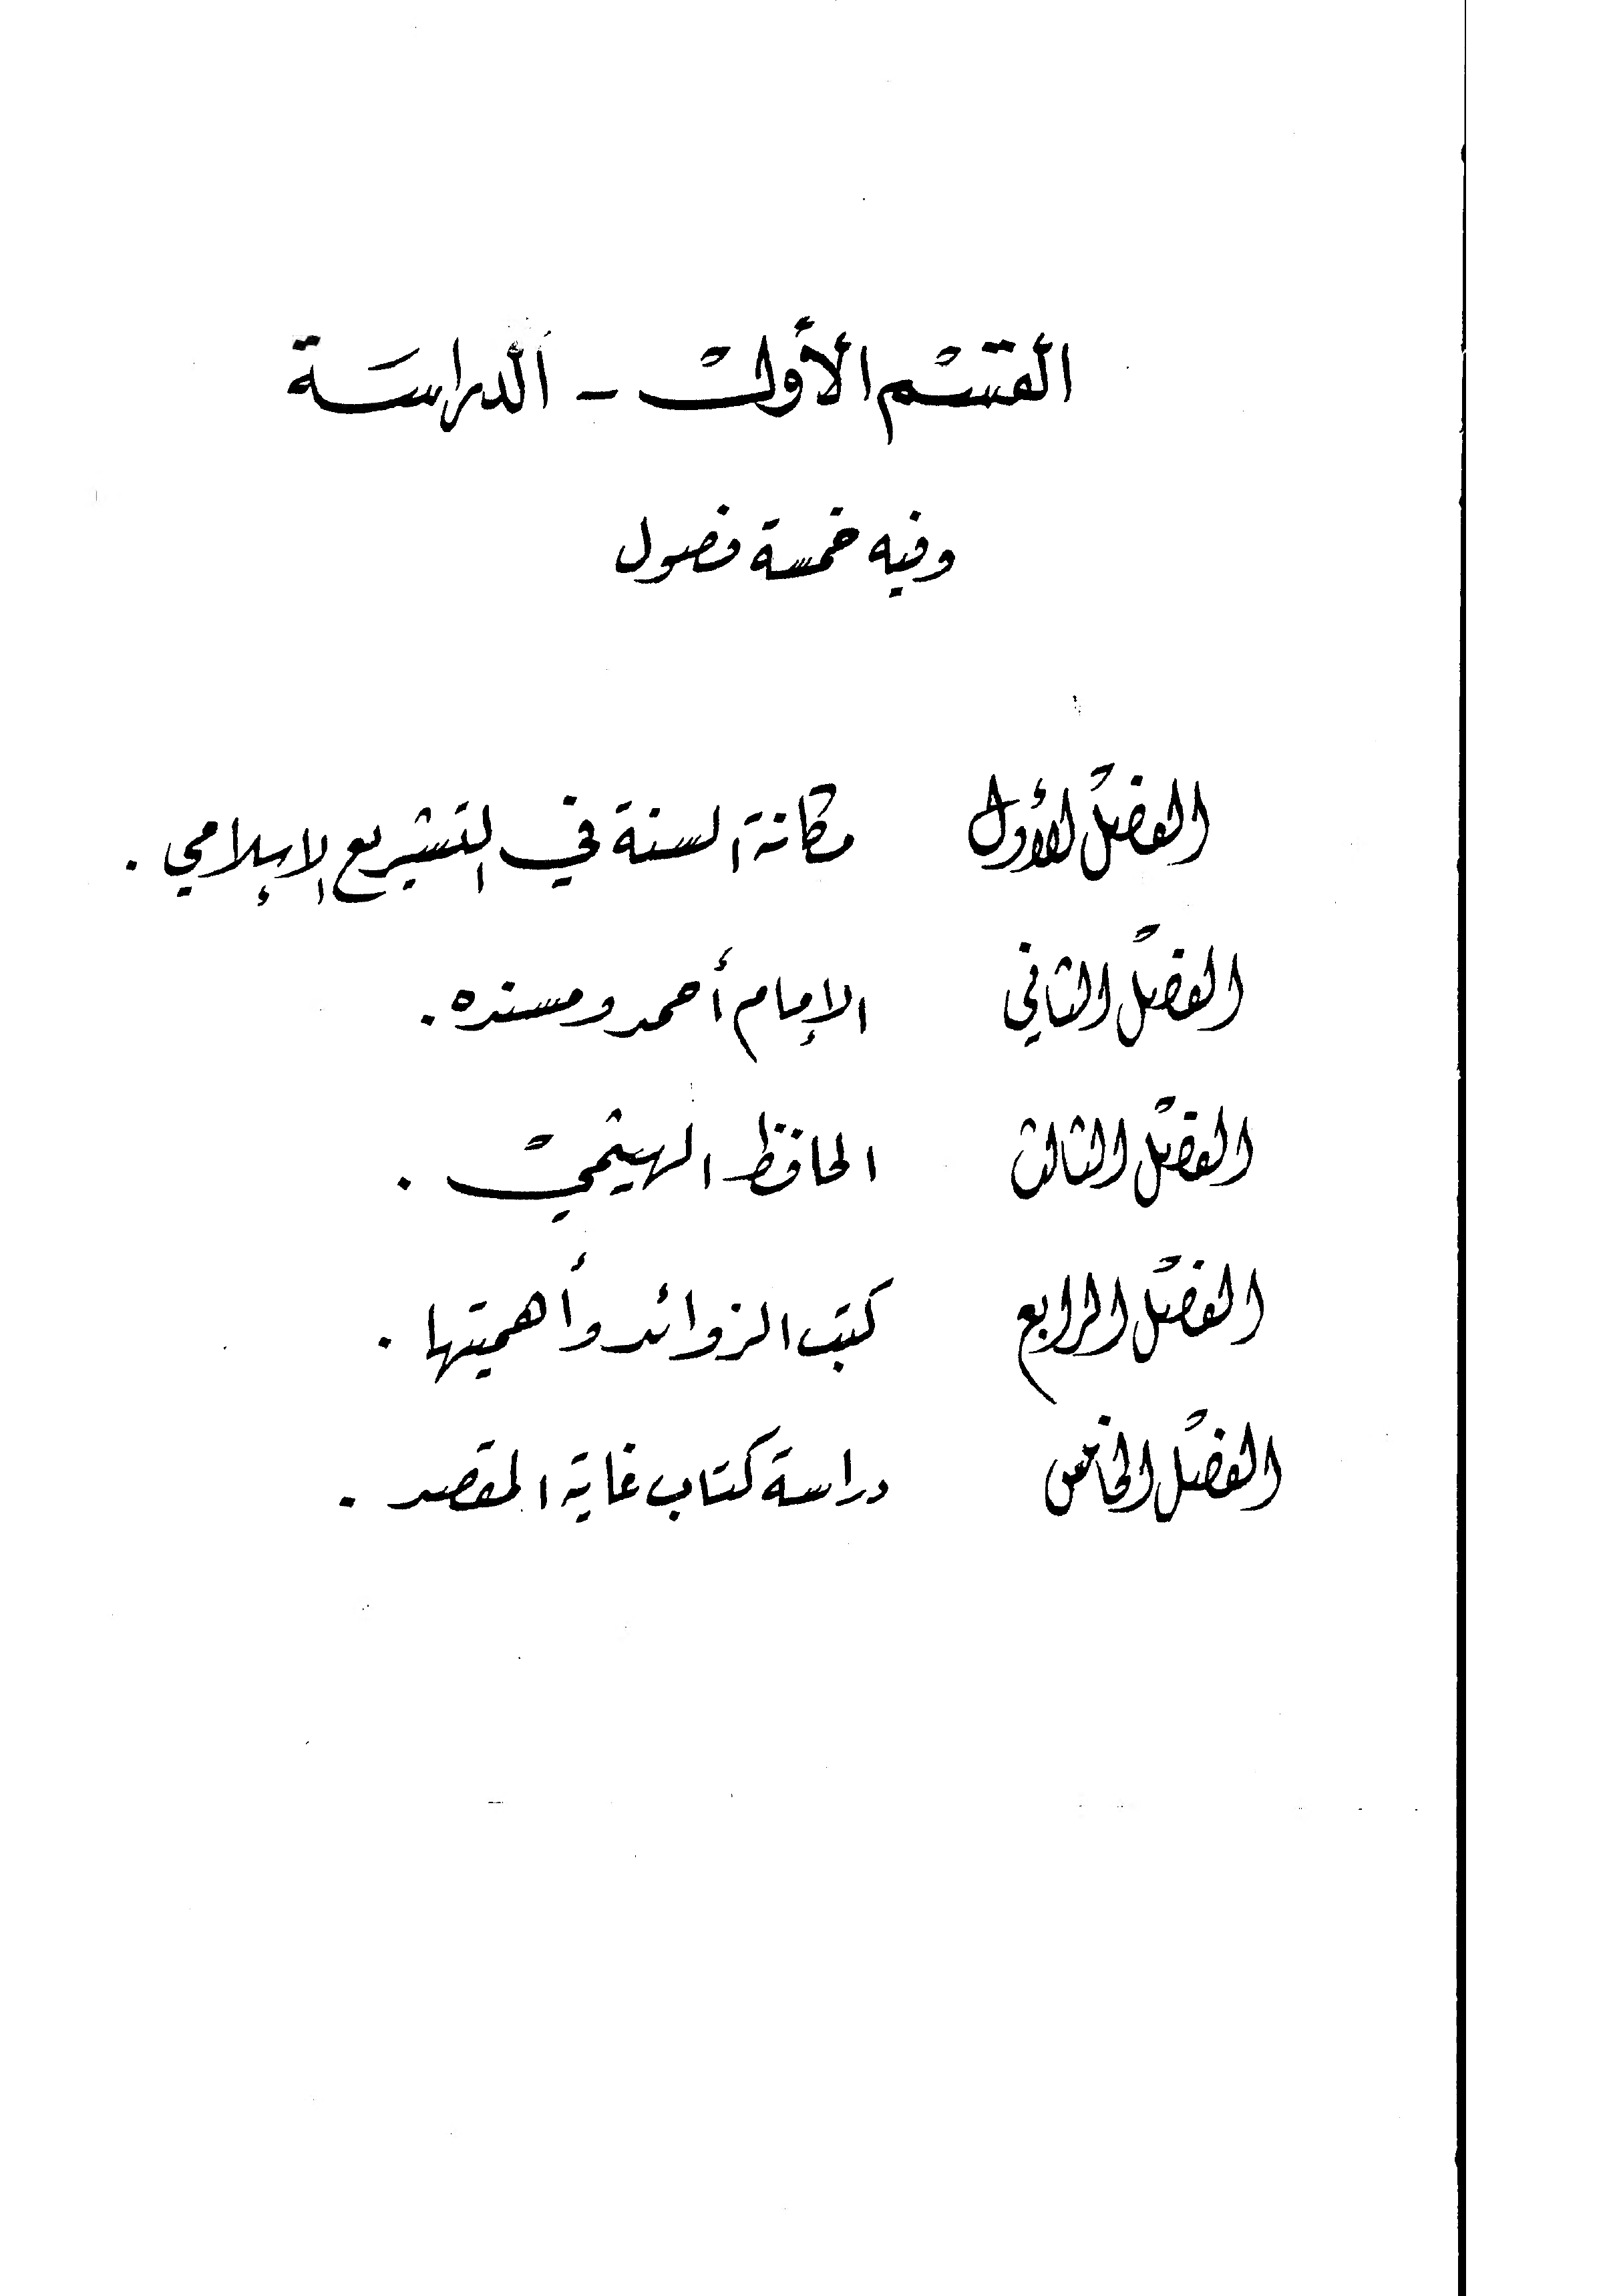 القسم الأول - الدراسة
وفيه خمسة فصول
الفصل الأول مكانة السنة في التشريع الإسلامي .
الفصل الثاني الإمام أحمد ومسنده .
الفصل الثالث الحافظ الهيثمي .
الفصل الرابع كتب الزوائد وأهميتها .
الفصل الخامس دراسة كتاب غاية المقصد .